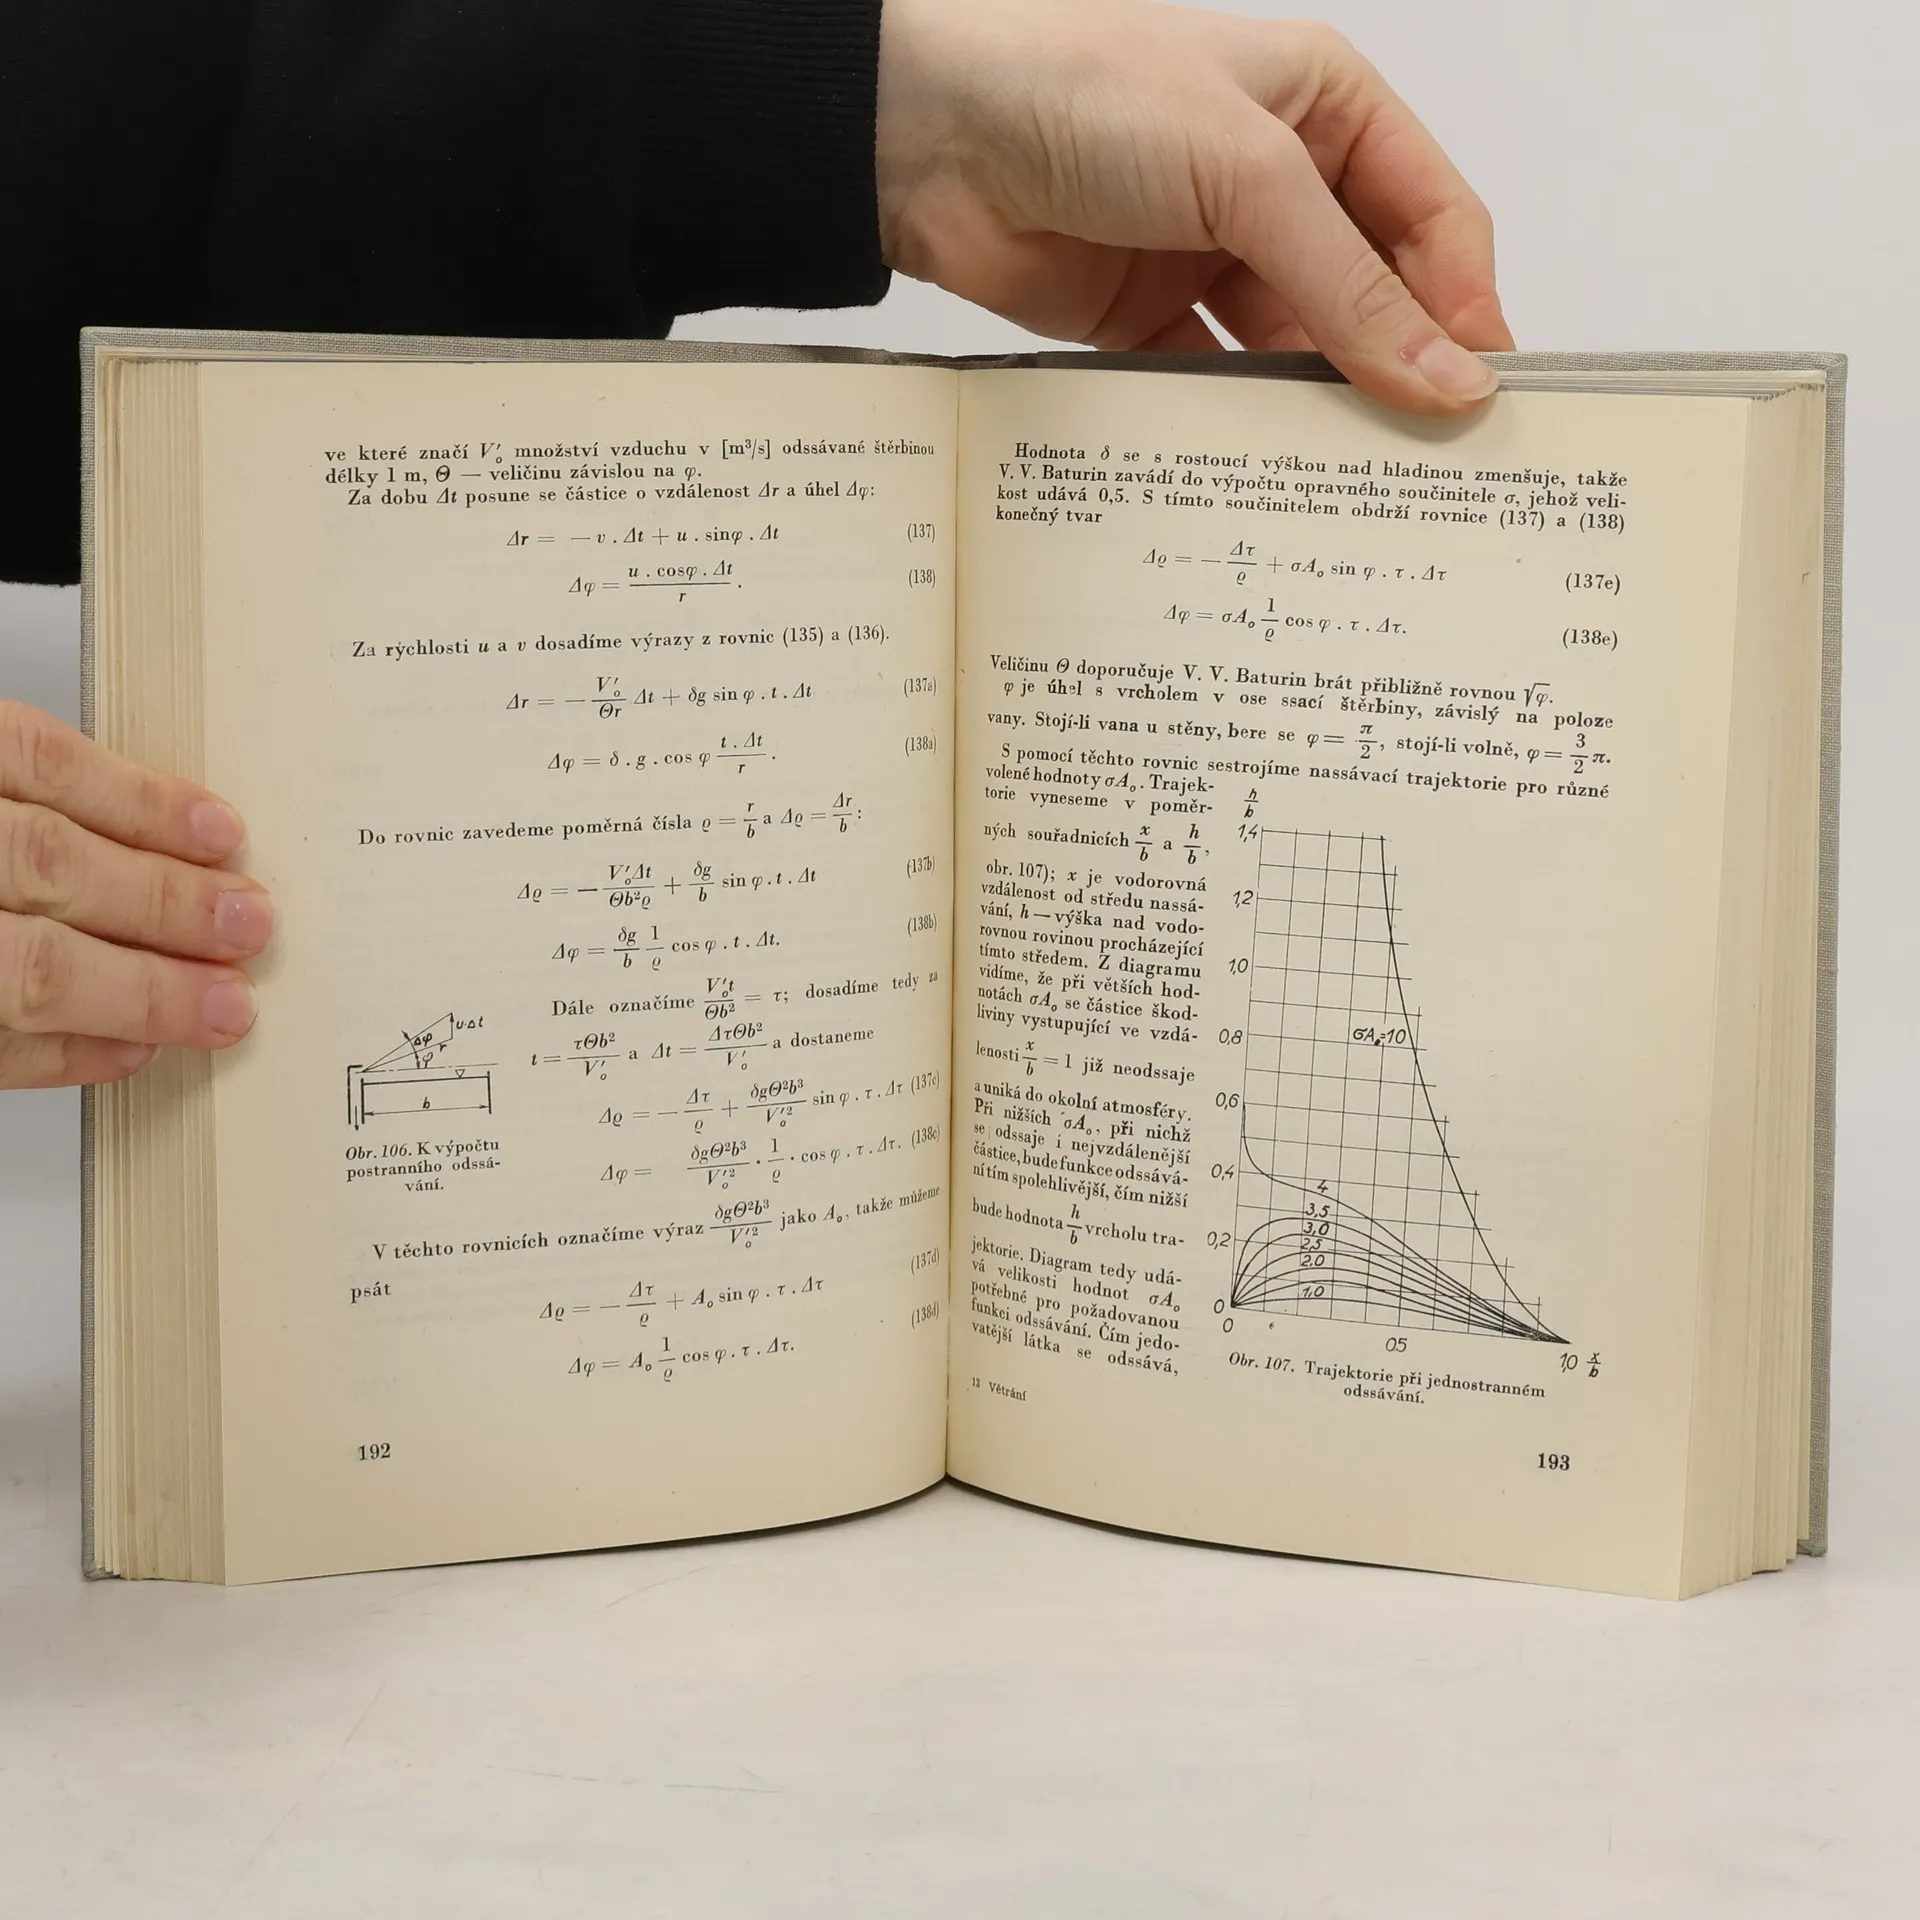 ve které značí V′₀ množství vzduchu v [m³/s] odssávané štěrbinou
délky 1 m, Θ — veličinu závislou na φ.
Za dobu Δt posune se částice o vzdálenost Δr a úhel Δφ:
Δr = — v . Δt + u . sinφ . Δt (137)
Δφ = u . cosφ . Δt / r . (138)
Za rychlosti u a v dosadíme výrazy z rovnic (135) a (136).
Δr = — V′₀/Θr Δt + δg sin φ . t . Δt (137a)
Δφ = δ . g . cos φ t . Δt / r . (138a)
Do rovnic zavedeme poměrná čísla ϱ = r/b a Δϱ = Δr/b :
Δϱ = — V′₀Δt/Θb²ϱ + δg/b sin φ . t . Δt (137b)
Δφ = δg/b 1/ϱ cos φ . t . Δt. (138b)
Dále označíme V′₀t/Θb² = τ; dosadíme tedy za
t = τΘb²/V′₀ a Δt = ΔτΘb²/V′₀ a dostaneme
Δϱ = — Δτ/ϱ + δgΘ²b³/V′₀² sin φ . τ . Δτ (137c)
Δφ = δgΘ²b³/V′₀² . 1/ϱ . cos φ . τ . Δτ. (138c)
u·Δt
Δφ
r
φ
b
Obr. 106. K výpočtu
postranního odssá-
vání.
V těchto rovnicích označíme výraz δgΘ²b³/V′₀² jako A₀, takže můžeme
psát
Δϱ = — Δτ/ϱ + A₀ sin φ . τ . Δτ (137d)
Δφ = A₀ 1/ϱ cos φ . τ . Δτ. (138d)
192
Hodnota δ se s rostoucí výškou nad hladinou zmenšuje, takže
V. V. Baturin zavádí do výpočtu opravného součinitele σ, jehož veli-
kost udává 0,5. S tímto součinitelem obdrží rovnice (137) a (138)
konečný tvar
Δϱ = — Δτ/ϱ + σA₀ sin φ . τ . Δτ (137e)
Δφ = σA₀ 1/ϱ cos φ . τ . Δτ. (138e)
Veličinu Θ doporučuje V. V. Baturin brát přibližně rovnou √φ.
φ je úhel s vrcholem v ose ssací štěrbiny, závislý na poloze
vany. Stojí-li vana u stěny, bere se φ = π/2, stojí-li volně, φ = 3/2 π.
S pomocí těchto rovnic sestrojíme nassávací trajektorie pro různé
volené hodnoty σA₀. Trajek-
torie vyneseme v poměr-
ných souřadnicích x/b a h/b,
obr. 107); x je vodorovná
vzdálenost od středu nassá-
vání, h — výška nad vodo-
rovnou rovinou procházející
tímto středem. Z diagramu
vidíme, že při větších hod-
notách σA₀ se částice škod-
liviny vystupující ve vzdá-
lenosti x/b = 1 již neodssaje
a uniká do okolní atmosféry.
Při nižších σA₀, při nichž
se odssaje i nejvzdálenější
částice, bude funkce odssává-
ní tím spolehlivější, čím nižší
bude hodnota h/b vrcholu tra-
jektorie. Diagram tedy udá-
vá velikosti hodnot σA₀
potřebné pro požadovanou
funkci odssávání. Čím jedo-
vatější látka se odssává,
13 Větrání
h/b
1,4
1,2
1,0
0,8
σA₀=10
0,6
0,4
4
3,5
3,0
0,2
2,5
2,0
1,0
0
0
0,5
1,0 x/b
Obr. 107. Trajektorie při jednostranném
odssávání.
193